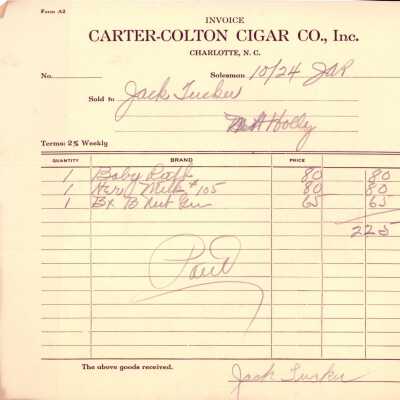 Form A2
INVOICE
CARTER-COLTON CIGAR CO., Inc.
CHARLOTTE, N. C.
No. Salesman 10/24 JAP
Sold to Jack Tucker
Mt Holly
Terms: 2% Weekly
QUANTITY BRAND PRICE
1 Baby Ruth 80 80
1 Her Milk #105 80 80
1 Bx B Nut Gum 65 65
225
Paid
The above goods received.
Jack Tucker